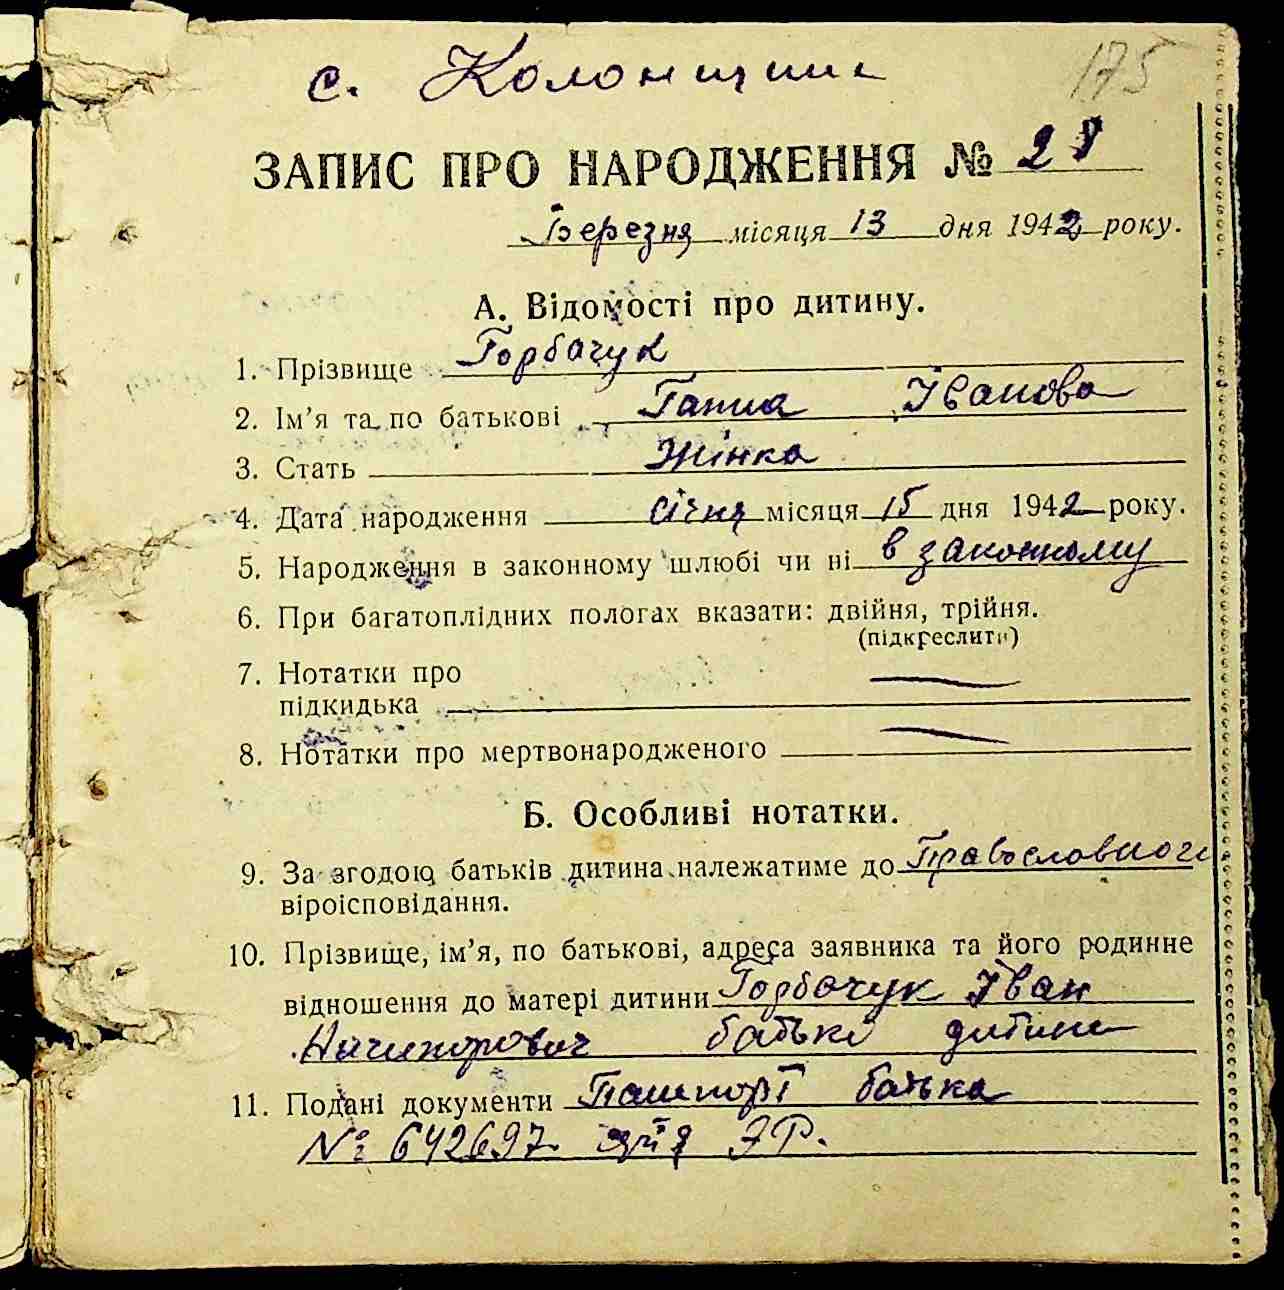 с. Колонщина
175
ЗАПИС ПРО НАРОДЖЕННЯ № 28
Березня місяця 13 дня 1942 року.
А. Відомості про дитину.
1. Прізвище Горбачук
2. Ім'я та по батькові Ганна Іванова
3. Стать Жінка
4. Дата народження січня місяця 15 дня 1942 року.
5. Народження в законному шлюбі чи ні в законному
6. При багатоплідних пологах вказати: двійня, трійня.
(підкреслити)
7. Нотатки про
підкидька —
8. Нотатки про мертвонародженого —
Б. Особливі нотатки.
9. За згодою батьків дитина належатиме до Православного
віроісповідання.
10. Прізвище, ім'я, по батькові, адреса заявника та його родинне
відношення до матері дитини Горбачук Іван
Ничипорович батько дитини
11. Подані документи Пашпорт батька
№ 642697 ЭР.